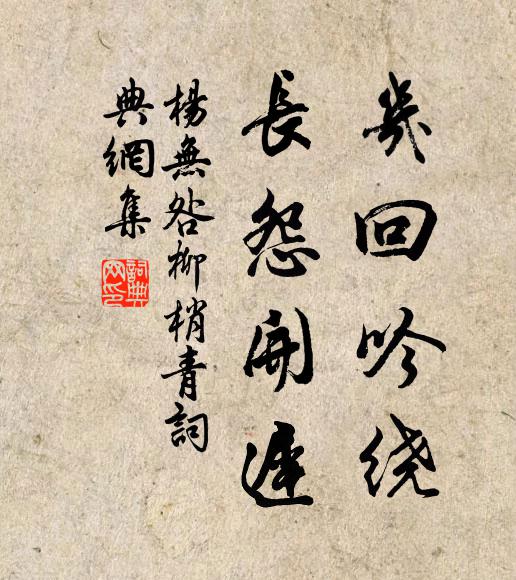 幾回吟繞
長怨開遲
楊無咎柳梢青詞
典網集
詞典網印